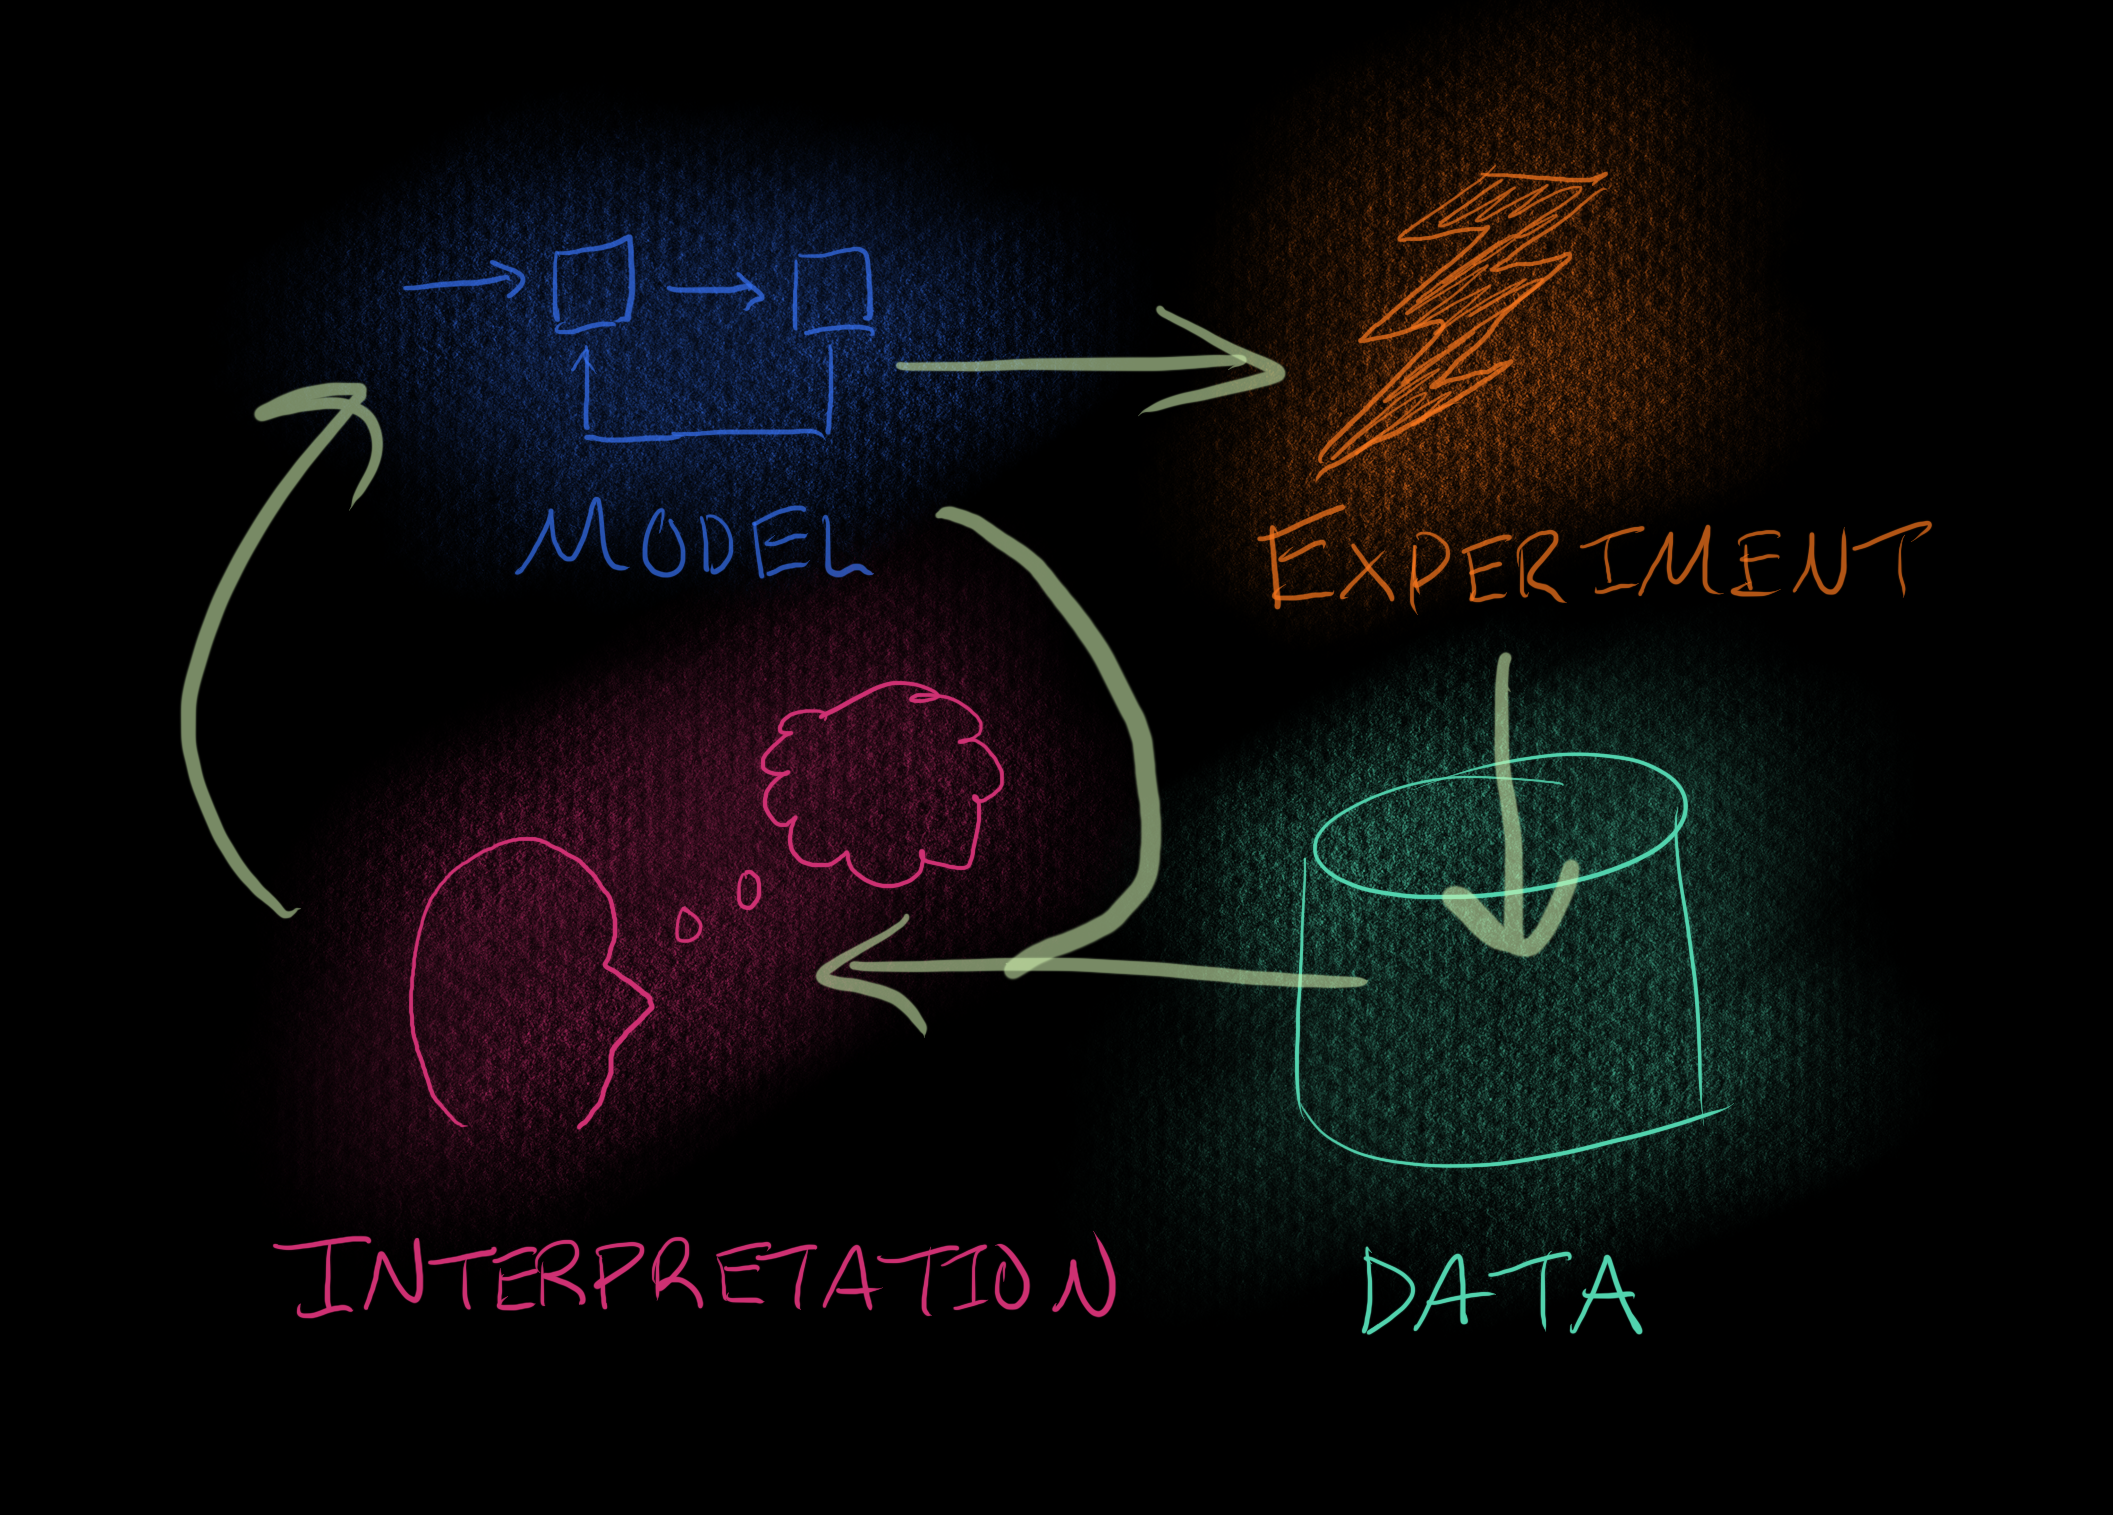 MODEL
EXPERIMENT
INTERPRETATION
DATA